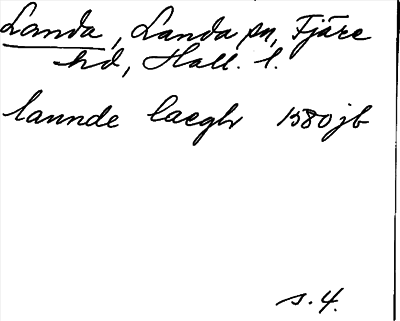 Landa, Landa sn, Fjäre
hd, Hall. l.
lannde laegh 1580 jb
s. 4.